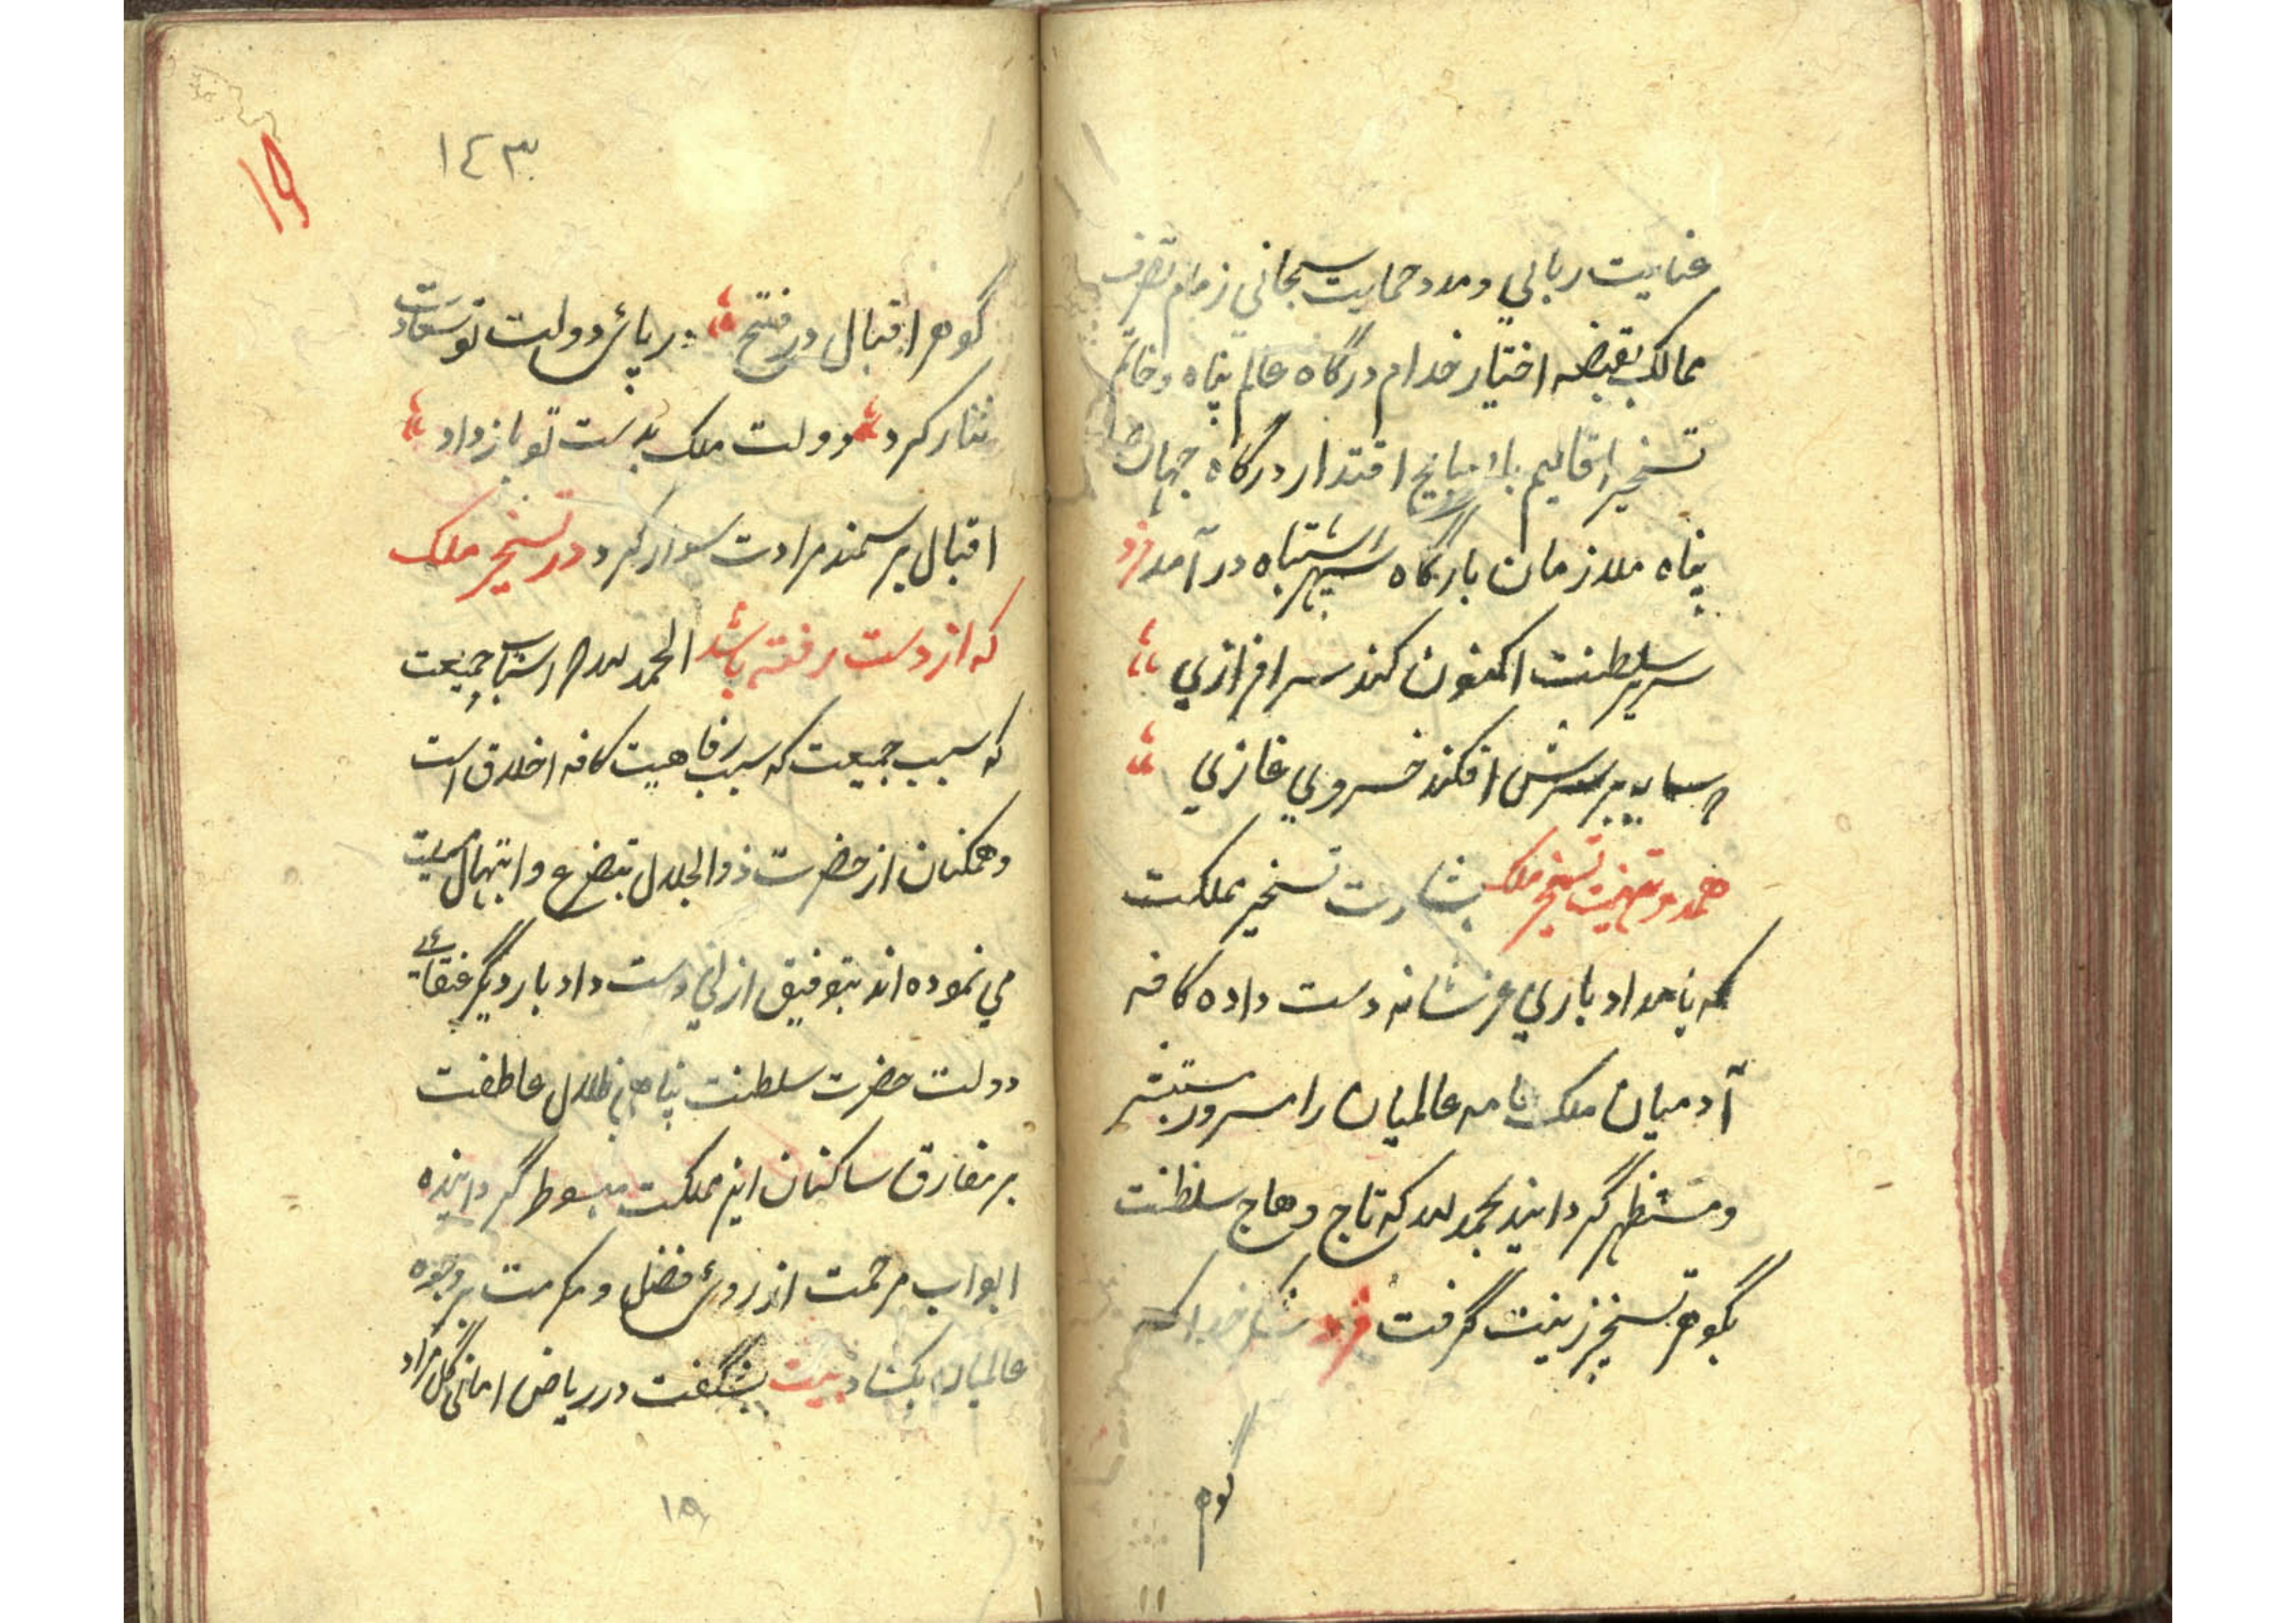 عنایت رباني و مدد حمایت سبحاني زمام تصرف
ممالک بقبضه اختیار خدام درگاه عالم پناه و خاتم
تسخیر اقالیم اقتدار درگاه جهان
پناه ملازمان بارگاه سپهر اشتباه در آمد فرد
سریر سلطنت اکنون کند سرافرازي
که سایه بر سرش افکند خسروي غازي
حمد و تهنیت تسخیر ملک بشارت تسخیر مملکت
که بامداد باري عز شانه دست داده کافه
آدمیان ملک عالمیان را مسرور مستبشر
و مستظهر گردانید بحمد لله که تاج وهاج سلطنت
بگوهر تسخیر زینت گرفت فرد شکر خدا که
گوهر
١٤٣
١٥
گوهر اقبال در فتح در پاش دولت تو سعادت
نثار کرد دولت ملک بدست تو باز داد
اقبال بر سمند مرادت سوار کرد در تسخیر ملک
که از دست رفته باشد الحمد لله که اسباب جمیعت
که سبب جمیعت که سبب رفاهیت کافه اخلاق است
و همکنان از حضرت ذوالجلال بتضرع و ابتهال
مي نموده اند بتوفیق ازلي دست داد بار دیگر عنقاي
دولت حضرت سلطنت پناهي ظلال عاطفت
بر مفارق ساکنان این مملکت مبسوط گردانیده
ابواب مرحمت از روی فضل و مکرمت بر وجوه
عالمیان بکشاد بیت بشگفت در ریاض اماني گل مراد
١٥